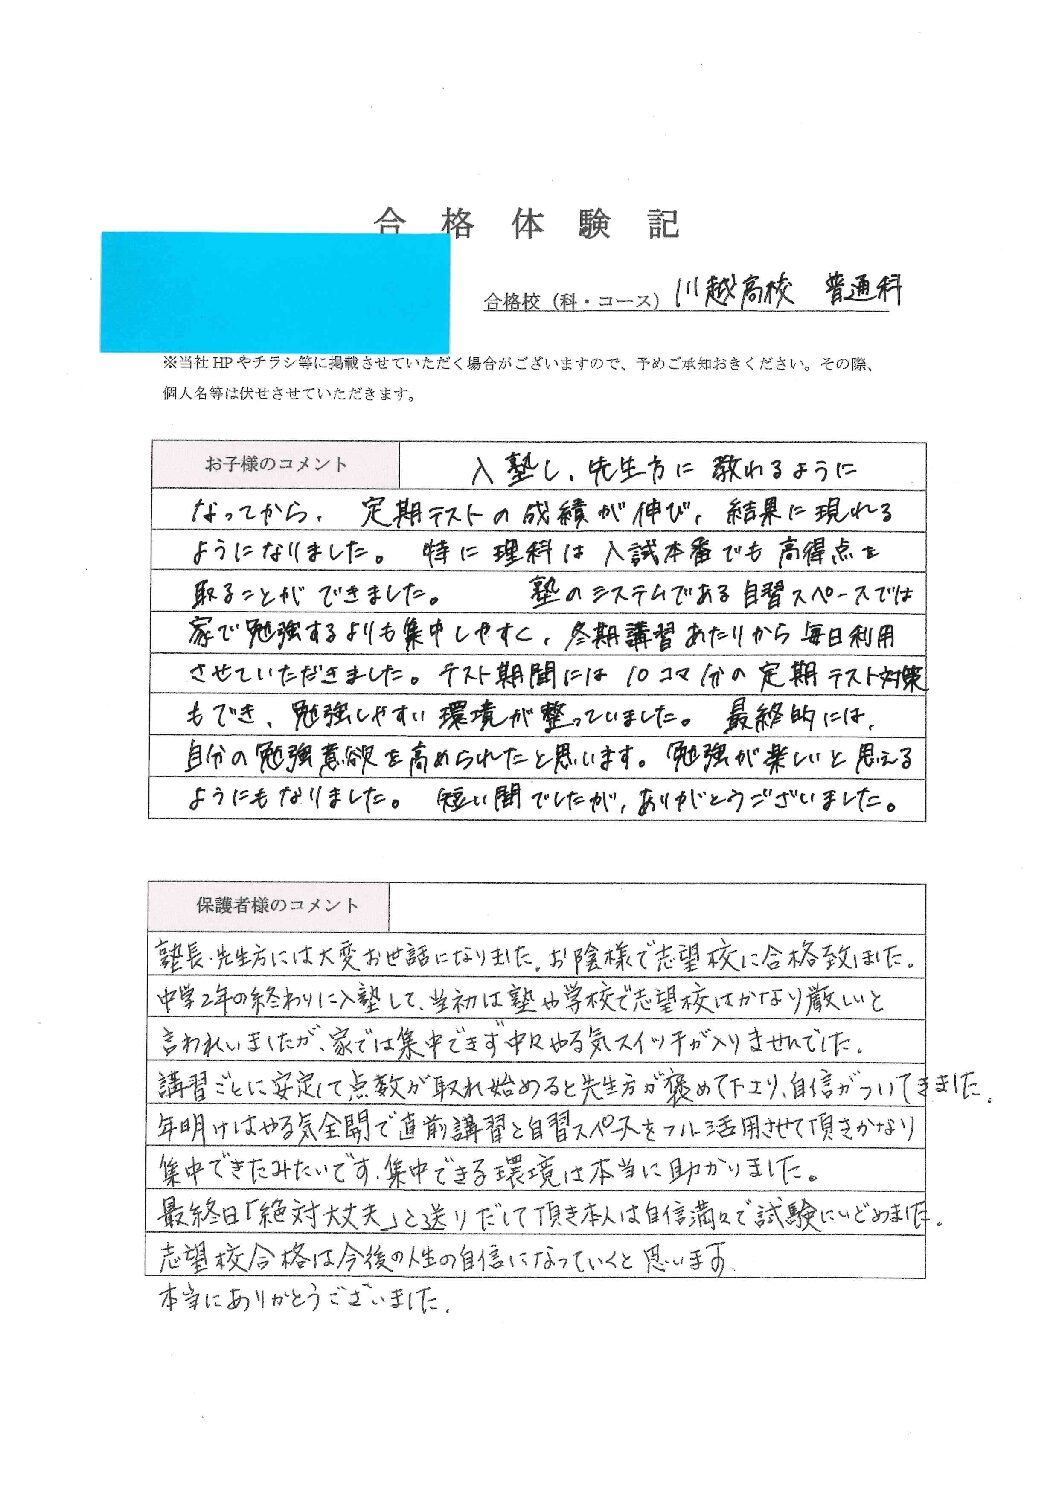 合格体験記
合格校（科・コース） 川越高校 普通科
※当社HPやチラシ等に掲載させていただく場合がございますので、予めご承知おきください。その際、
個人名等は伏せさせていただきます。
お子様のコメント 入塾し、先生方に教れるように
なってから、定期テストの成績が伸び、結果に現れる
ようになりました。特に理科は入試本番でも高得点を
取ることができました。 塾のシステムである自習スペースでは
家で勉強するよりも集中しやすく、冬期講習あたりから毎日利用
させていただきました。テスト期間には10コマ分の定期テスト対策
もでき、勉強しやすい環境が整っていました。最終的には、
自分の勉強意欲を高められたと思います。勉強が楽しいと思える
ようにもなりました。短い間でしたが、ありがとうございました。
保護者様のコメント
塾長・先生方には大変お世話になりました。お陰様で志望校に合格致ました。
中学2年の終わりに入塾して、当初は塾や学校で志望校はかなり厳しいと
言われいましたが、家では集中できず中々やる気スイッチが入りませんでした。
講習ごとに安定して点数が取れ始めると先生方が褒めて下さり、自信がついてきました。
年明けはやる気全開で直前講習と自習スペースをフル活用させて頂きかなり
集中できたみたいです。集中できる環境は本当に助かりました。
最終日「絶対大丈夫」と送りだして頂き本人は自信満々で試験にいどめました。
志望校合格は今後の人生の自信になっていくと思います。
本当にありがとうございました。